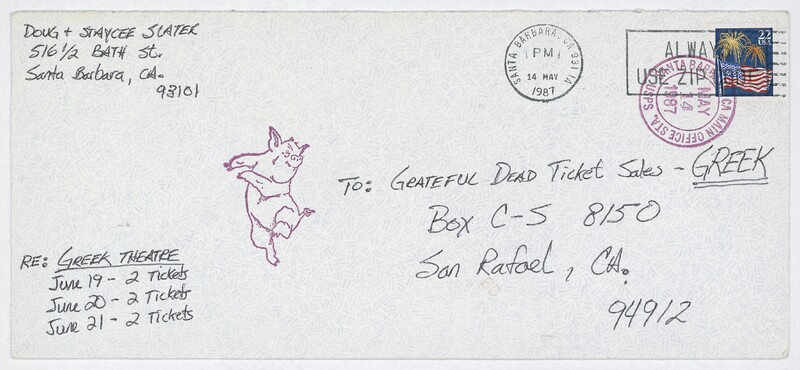 DOUG + STAYCEE SLATER
516 1/2 BATH St.
Santa Barbara, CA.
93101
SANTA BARBARA, CA 931 1A
PM
14 MAY
1987
ALWAY
USE ZIP CODE
22
USA
SANTA BARBARA CA MAIN OFFICE STA. USPS
MAY
14
1987
TO: GRATEFUL DEAD Ticket Sales - GREEK
Box C-S 8150
San Rafael, CA.
94912
RE: GREEK THEATRE
June 19 - 2 Tickets
June 20 - 2 Tickets
June 21 - 2 Tickets